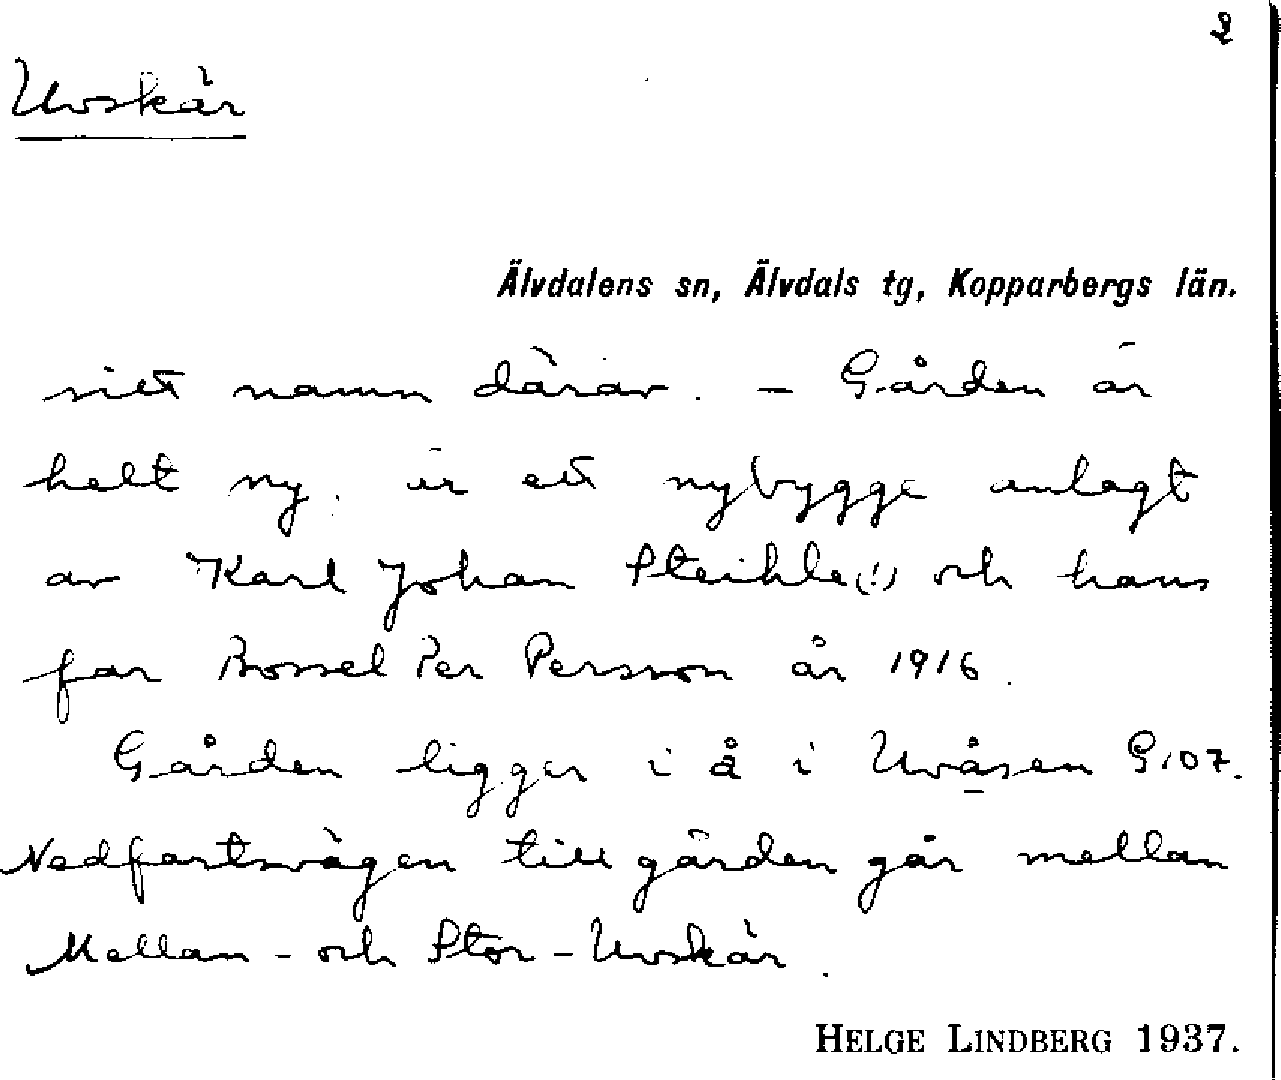 2
Uvskär
Älvdalens sn, Älvdals tg, Kopparbergs län.
sitt namn därav. – Gården är
helt ny. är ett nybygge anlagt
av Karl Johan Steihle(!) och hans
far Bossel Per Persson år 1916.
Gården ligger i å i Uvåsen G:07.
Nedfartsvägen till gården går mellan
Mellan- och Stor-Uvskär.
HELGE LINDBERG 1937.